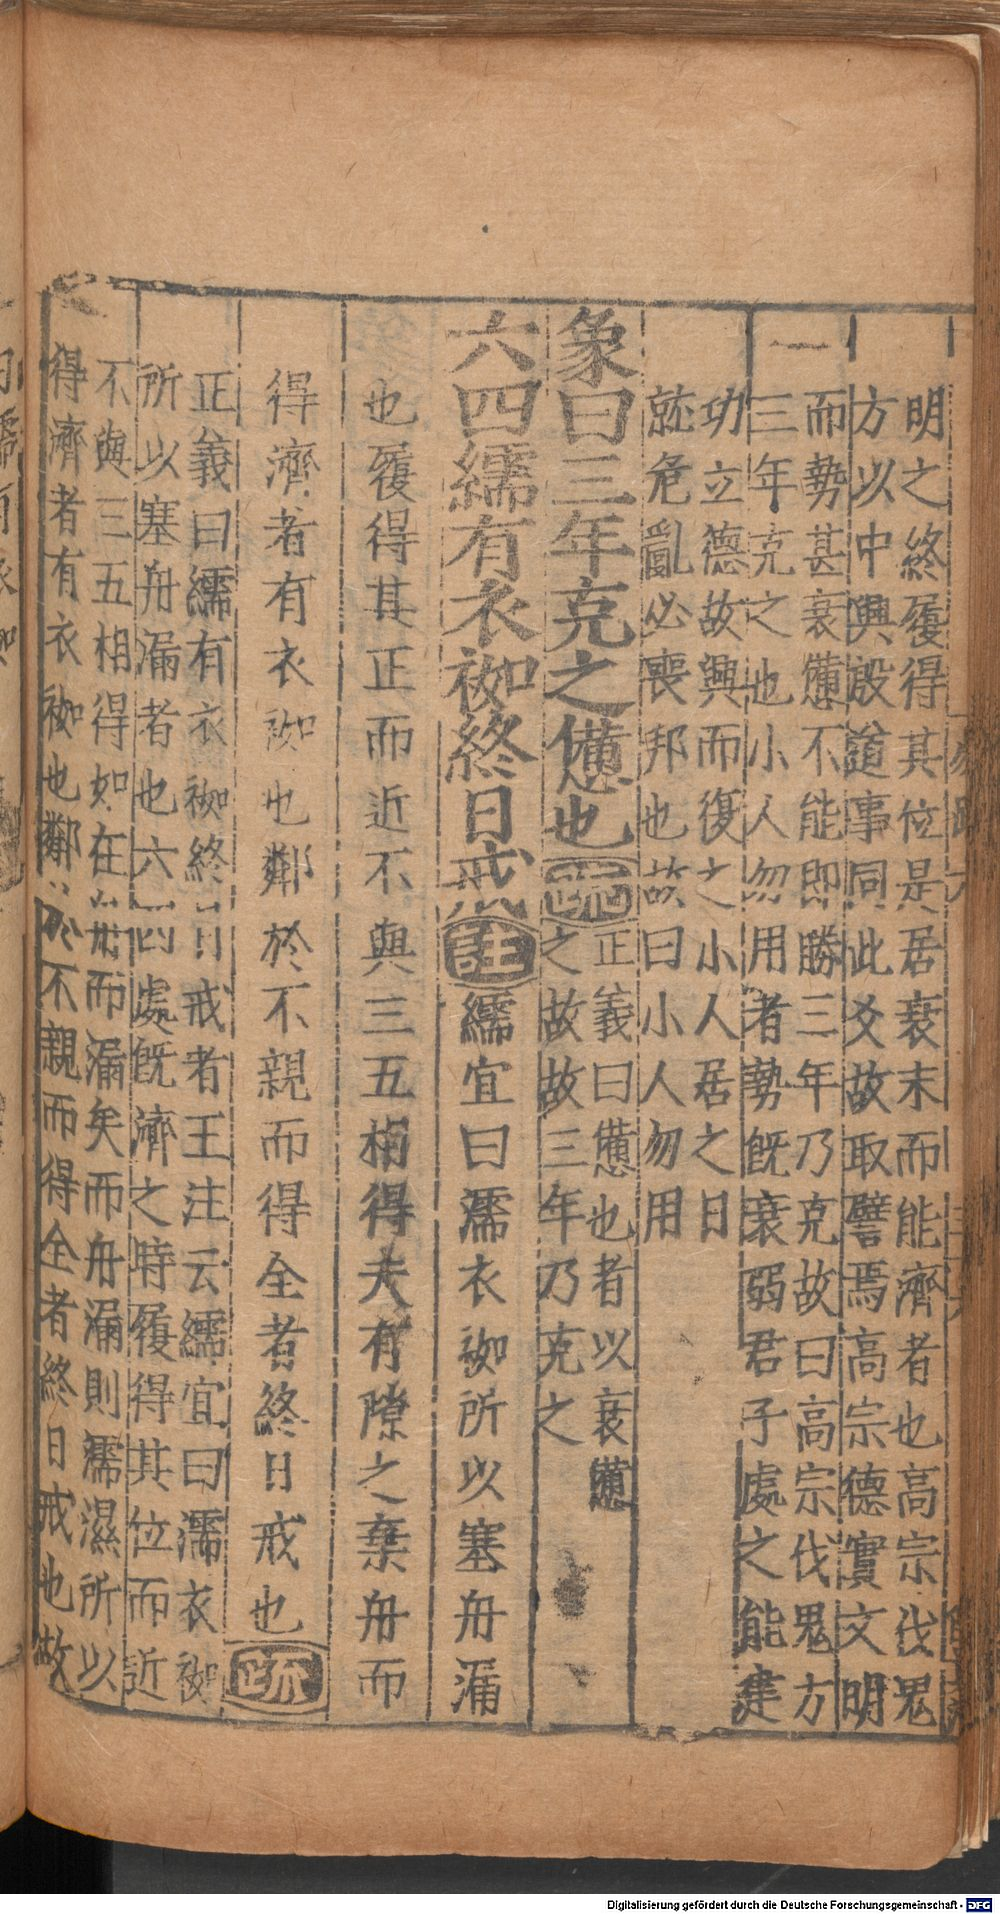 明之終履得其位是居衰末而能濟者也高宗伐鬼
方以中興殷道事同此爻故取譬焉高宗德實文明
而勢甚衰憊不能即勝三年乃克故曰高宗伐鬼方
三年克之也小人勿用者勢既衰弱君子處之能建
功立德故興而復之小人居之日
就危亂必喪邦也故曰小人勿用
象曰三年克之憊也疏
正義曰憊也者以衰憊
之故故三年乃克之
六四繻有衣袽終日戒註繻宜曰濡衣袽所以塞舟漏
也履得其正而近不與三五相得夫有隙之棄舟而
得濟者有衣袽也鄰於不親而得全者終日戒也疏
正義曰繻有衣袽終日戒者王注云繻宜曰濡衣袽
所以塞舟漏者也六四處既濟之時履得其位而近
不與三五相得如在舟而漏矣而舟漏則濡濕所以
得濟者有衣袽也鄰於不親而得全者終日戒也故
Digitalisierung gefördert durch die Deutsche Forschungsgemeinschaft - DFG